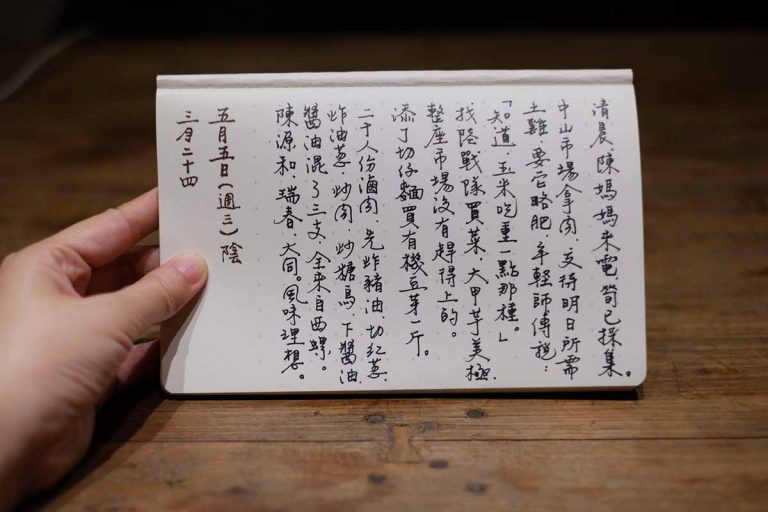 清晨，陳媽媽來電，筍已採集。
中山市場拿肉，交待明日所需
土雞，要它略肥，年輕師傅說：
「知道，玉米吃重一點那種。」
找陸戰隊買菜，大甲芋美極，
整座市場沒有趕得上的。
添了切仔麵買有機豆芽一斤。
二十人份滷肉，先炸豬油，切紅蔥，
炸油蔥，炒肉，炒糖烏，下醬油，
醬油混了三支，全來自西螺。
陳源和，瑞春，大同。風味理想。
五月五日（週三）陰
三月二十四